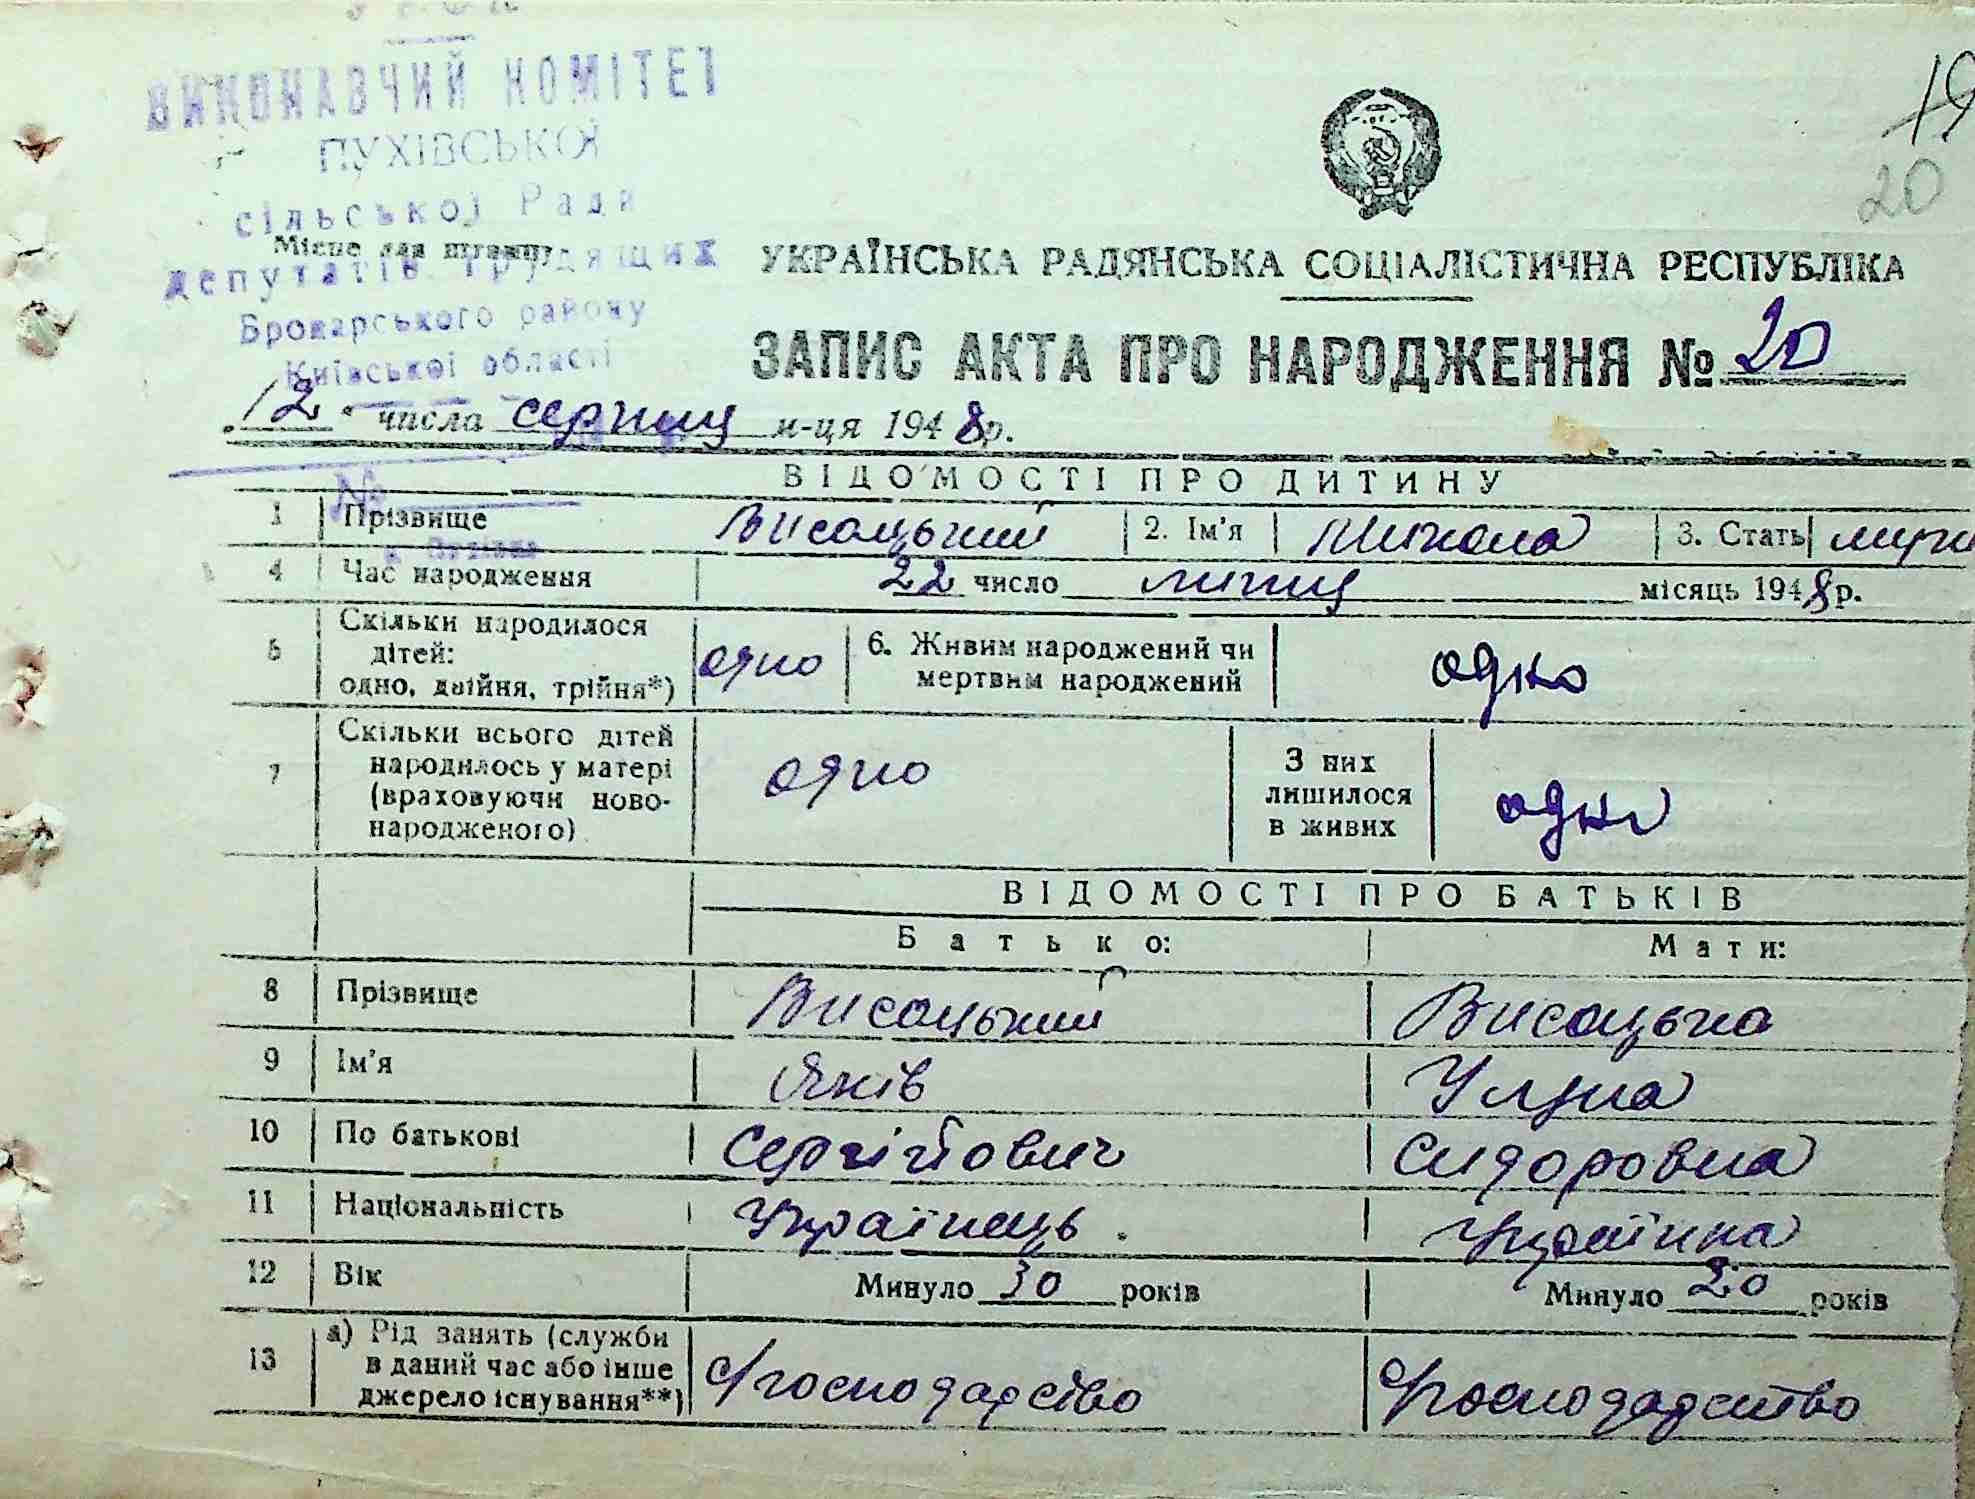 ВИКОНАВЧИЙ КОМІТЕТ
ПУХІВСЬКОЇ
сільської Ради
Місце для штампу
депутатів трудящих
Броварського району
Київської області
19
20
УКРАЇНСЬКА РАДЯНСЬКА СОЦІАЛІСТИЧНА РЕСПУБЛІКА
ЗАПИС АКТА ПРО НАРОДЖЕННЯ № 20
„12“ числа серпня м-ця 1948 р.
№
ВІДОМОСТІ ПРО ДИТИНУ
1 Прізвище Висоцький 2. Ім'я Микола 3. Стать
4 Час народження 22 число липня місяць 1948 р.
5 Скільки народилося дітей: одно, двійня, трійня*) одно 6. Живим народжений чи мертвим народжений одно
7 Скільки всього дітей народилось у матері (враховуючи новонародженого) одно З них лишилося в живих одно
ВІДОМОСТІ ПРО БАТЬКІВ
Батько: Мати:
8 Прізвище Висоцький Висоцька
9 Ім'я Яків Уляна
10 По батькові Сергійович Сидоровна
11 Національність Українець. Українка
12 Вік Минуло 30 років Минуло 20 років
13 а) Рід занять (служби в даний час або інше джерело існування**) с/господарство с/господарство